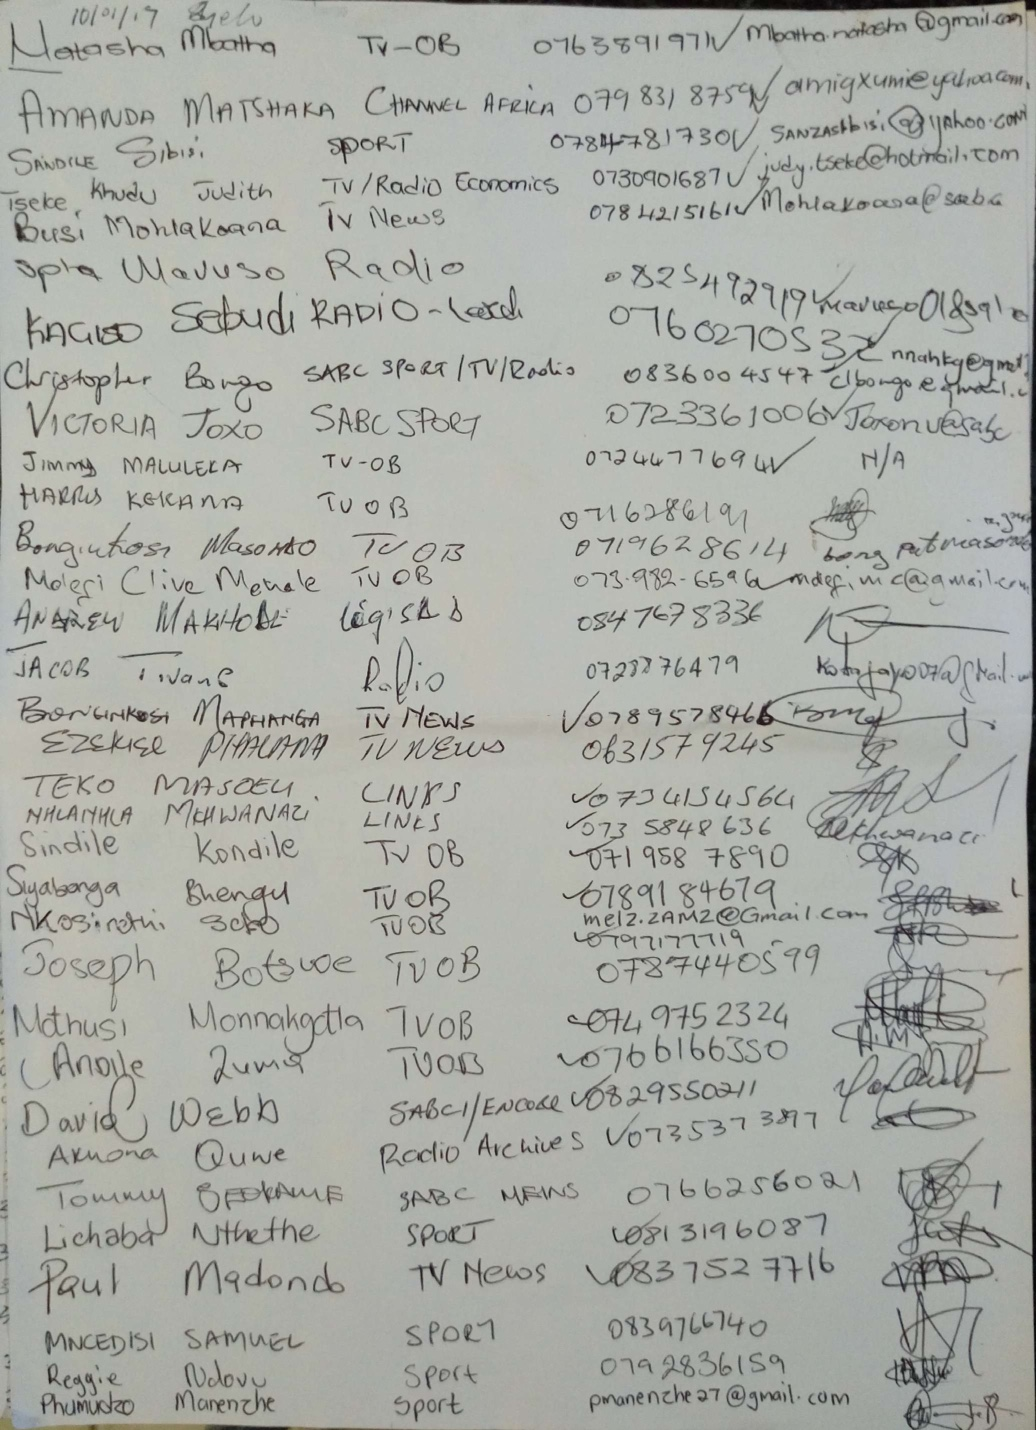 10/01/17
Natasha Mbatha TV-OB 0763891971 Mbatha.natasha@gmail.com
AMANDA MATSHAKA CHANNEL AFRICA 079 831 8759 amigxumi@yahoo.com
SANDILE Sibisi SPORT 0784781730 SANZASibisi@yahoo.com
Tseke, Khudu Judith TV/Radio Economics 0730901687 judy.tseke@hotmail.com
Busi Mohlakoana TV News 0784215161 Mohlakoana@sabc
Mavuso Radio 0825492919
KAGISO Sebudi RADIO- 0760270532
Christopher Bongo SABC SPORT/TV/Radio 0836004547 clbongo@gmail.c
VICTORIA JOXO SABC SPORT 0723361006 Joxonv@sabc
Jimmy MALULEKA TV-OB 0724477694 N/A
HARRIS KEKANA TV OB 0716286191
Bonginkosi Masombo TV OB 0719628614
Mdegi Clive Menale TV OB 073-982-6596 mdegi.mc@gmail.com
ANDREW MAKHOBE 0847678336
JACOB Tivane Radio 0728876479
BONGINKOSI MAPHANGA TV NEWS 0789578466
EZEKIEL PHALANA TV NEWS 0631579245
TEKO MASOEU LINKS 0734154564
NHLANHLA MKHWANAZI LINKS 073 5848 636 Mkhwanazi
Sindile Kondile TV OB 071 958 7890
Siyabonga Bhengu TV OB 0789184679
Nkosinathi TV OB melz.ZAMZ@Gmail.com
0797177719
Joseph Botswe TV OB 0787440599
Mothusi Monnakgotla TV OB 0749752324
Andile Zuma TV OB 0766166350
David Webb SABC1/ENCORE 0829550211
Akhona Qunwe Radio Archives 073537 3897
Tommy SABC NEWS 0766256021
Lichaba Nthethe SPORT 0813196087
Paul Madondo TV News 083 752 7716
MNCEDISI SAMUEL SPORT 0839766740
Reggie Ndovu Sport 0792836159
Phumudzo Manenzhe Sport pmanenzhe27@gmail.com